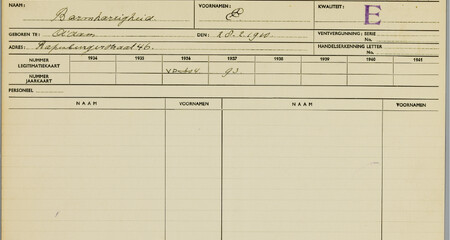 NAAM: Barmhartigheid. VOORNAMEN: E KWALITEIT: E
GEBOREN TE: A'dam DEN: 28.2.1900 VENTVERGUNNING: SERIE No.
ADRES: Rapenburgerstraat 46. HANDELSERKENNING LETTER No.
NUMMER LEGITIMATIEKAART 1934 1935 1936 1937 1938 1939 1940 1941
NUMMER JAARKAART 93
PERSONEEL
NAAM VOORNAMEN NAAM VOORNAMEN